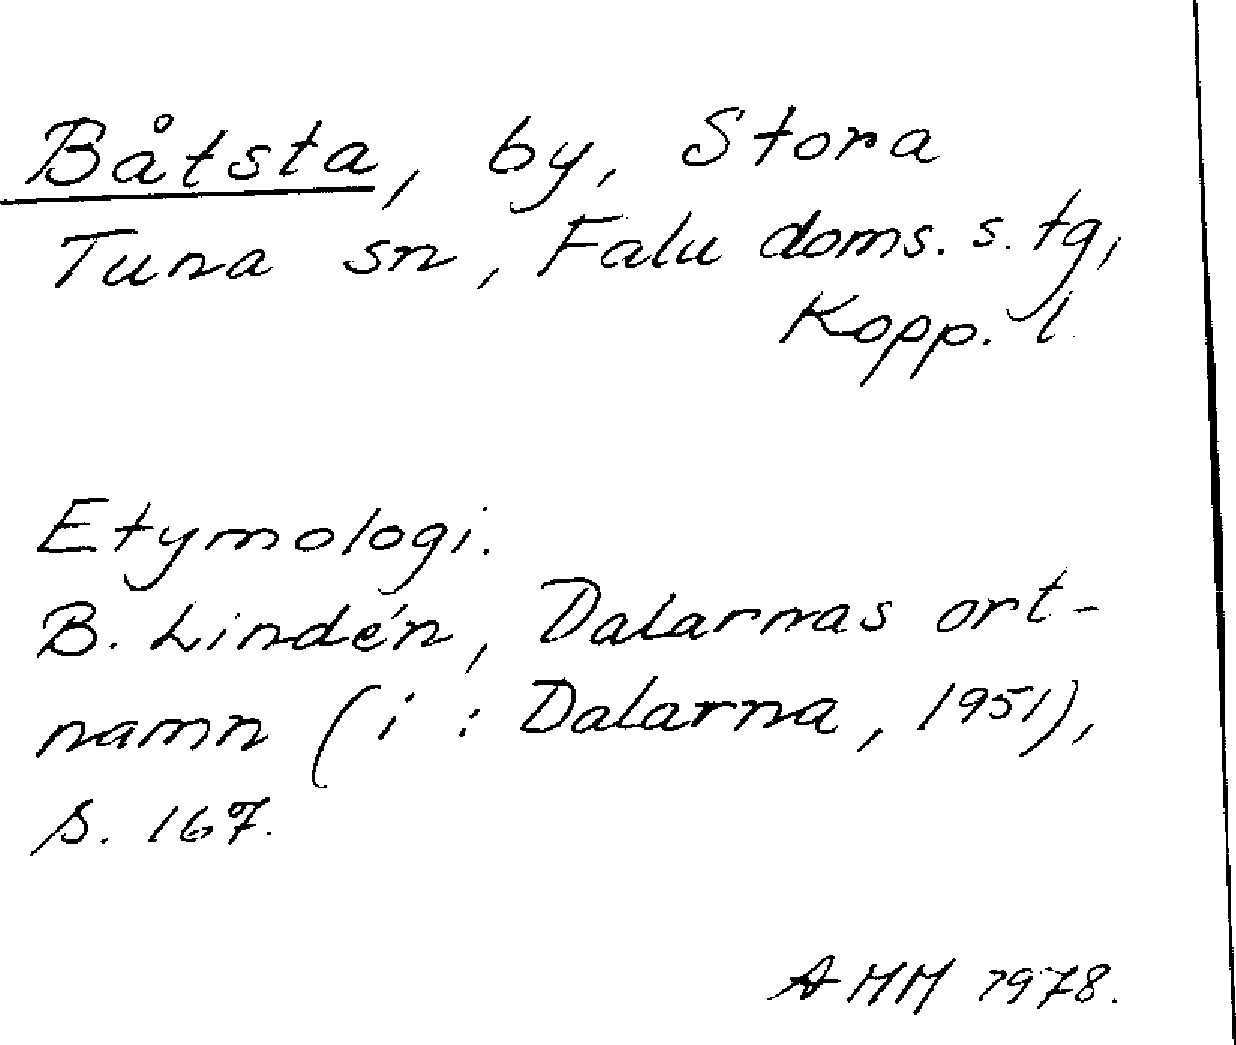 Båtsta, by, Stora
Tuna sn, Falu doms. s. tg,
Kopp. l
Etymologi.
B. Lindén, Dalarnas ort-
namn (i : Dalarna, 1951),
S. 167.
AMM 1978.